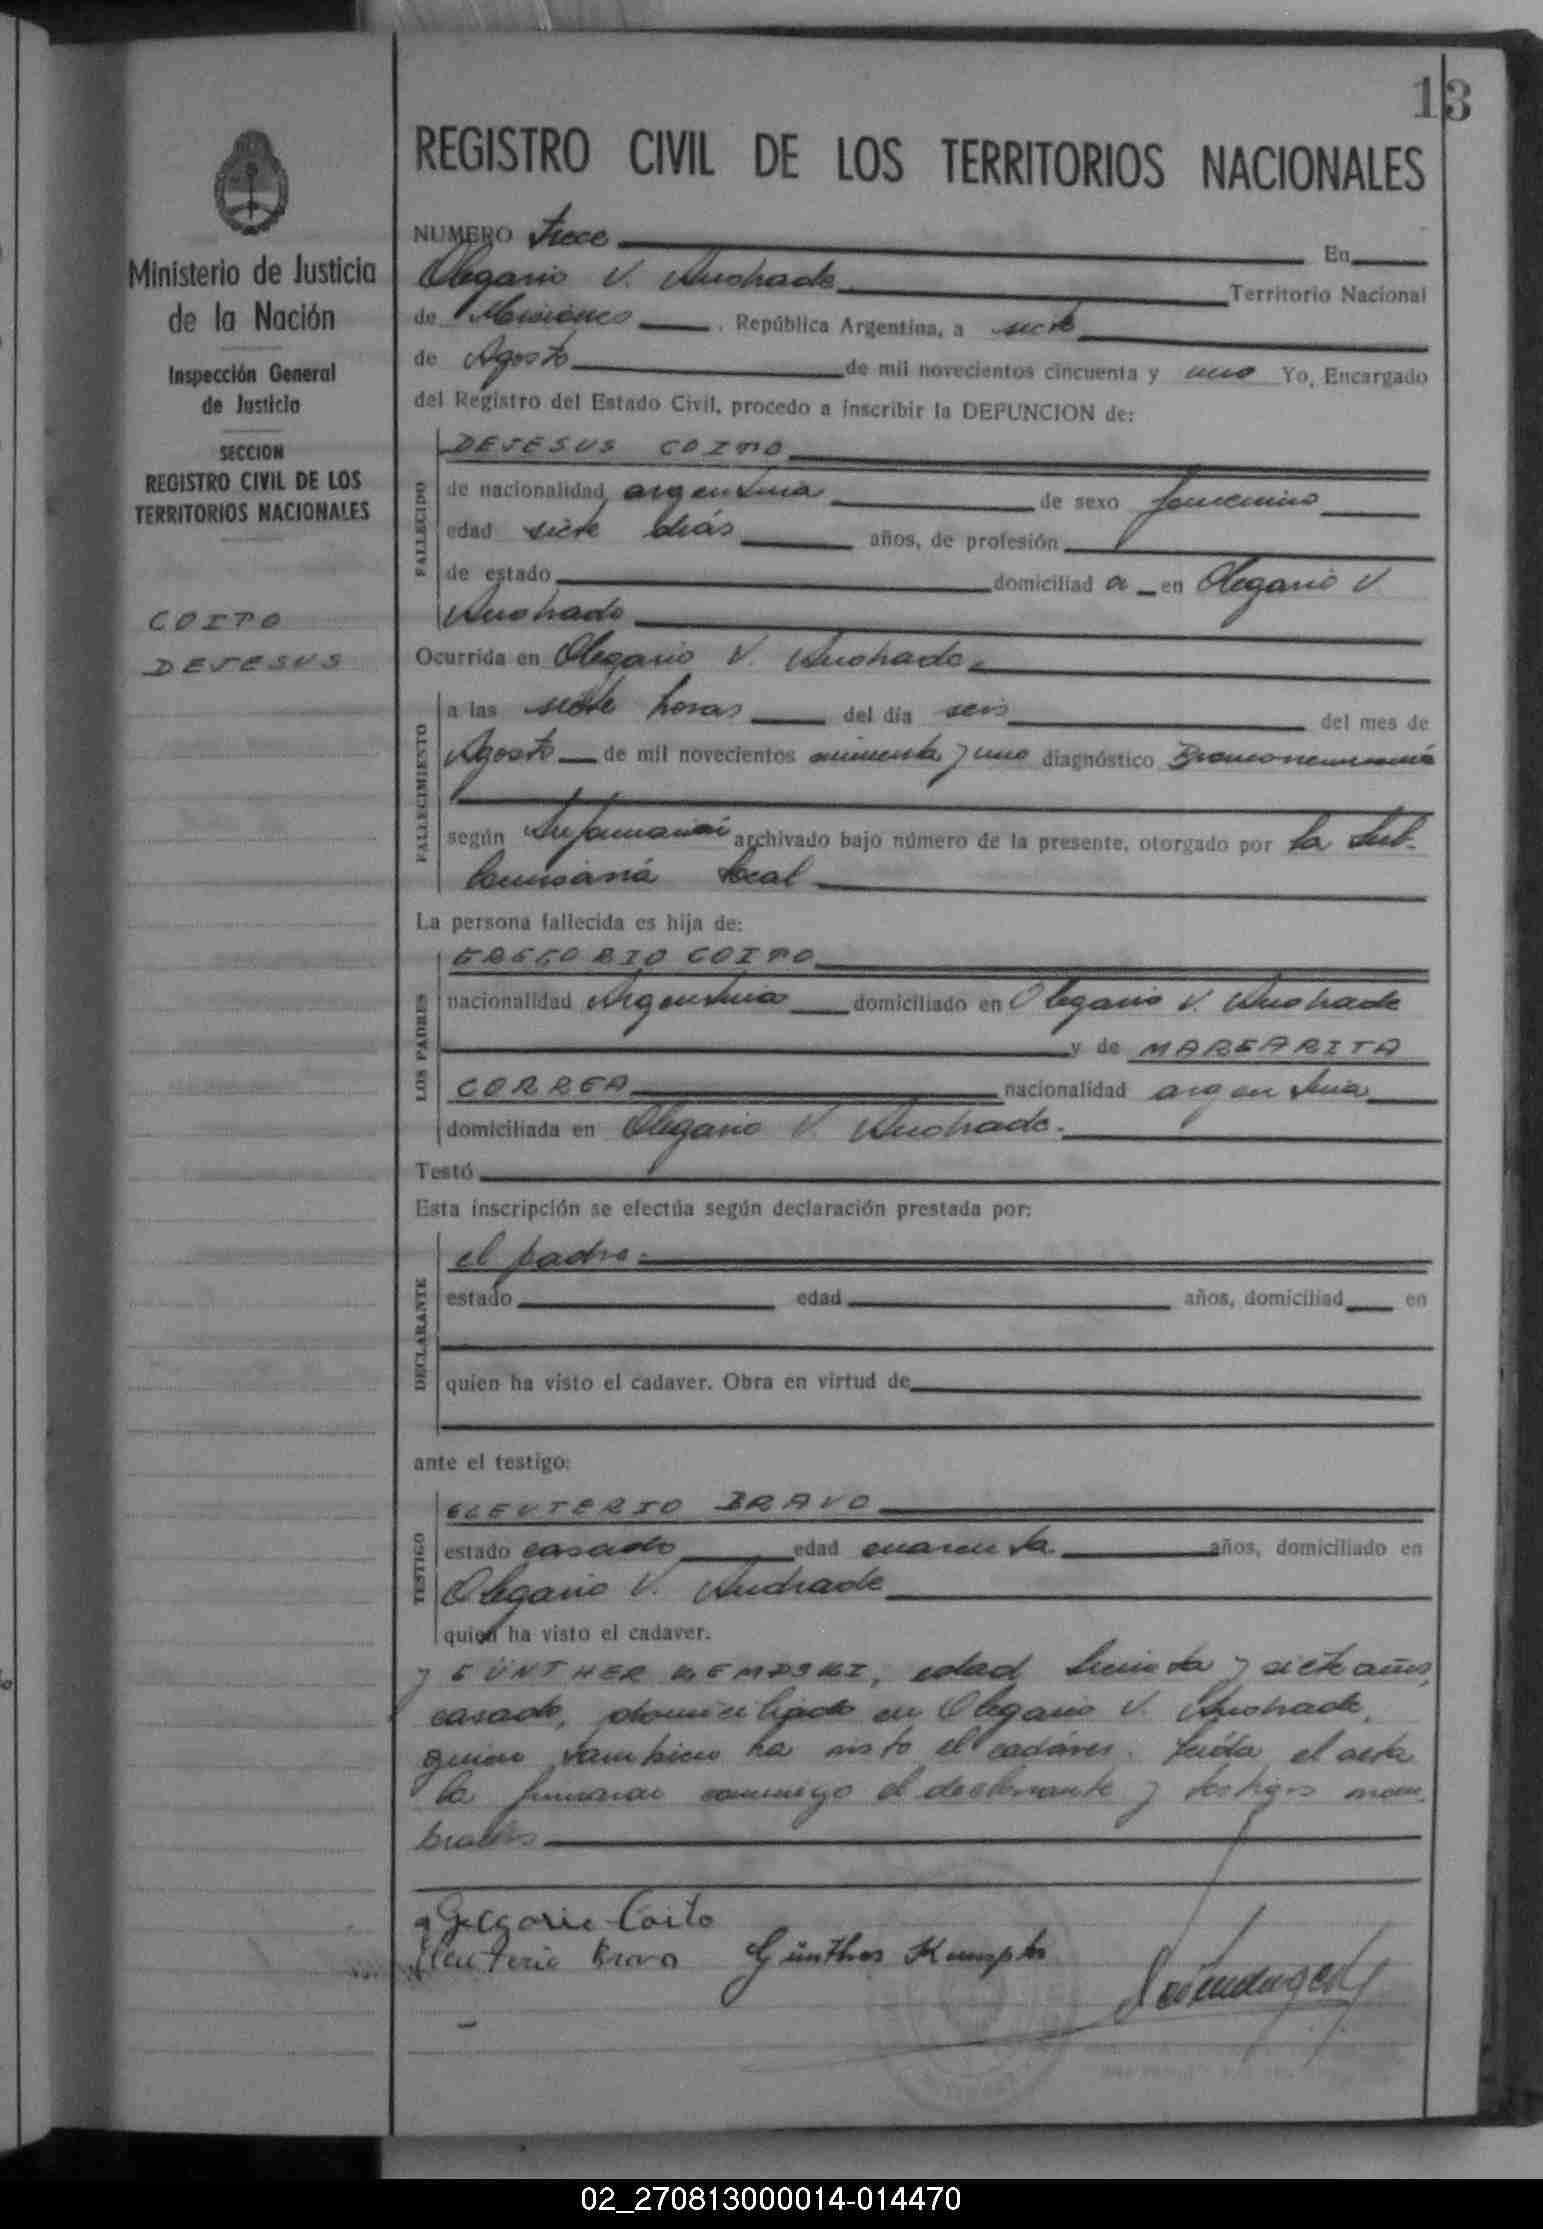 13
REGISTRO CIVIL DE LOS TERRITORIOS NACIONALES
Ministerio de Justicia
de la Nación
Inspección General
de Justicia
SECCION
REGISTRO CIVIL DE LOS
TERRITORIOS NACIONALES
COITO
DEJESUS
NUMERO trece En
Olegario V. Andrade Territorio Nacional
de Misiones . República Argentina, a siete
de Agosto de mil novecientos cincuenta y uno Yo, Encargado
del Registro del Estado Civil, procedo a inscribir la DEFUNCION de:
FALLECIDO
DEJESUS COITO
de nacionalidad argentina de sexo femenino
edad siete diás años, de profesión
de estado domiciliad a en Olegario V
Andrade
Ocurrida en Olegario V. Andrade
FALLECIMIENTO
a las siete horas del día seis del mes de
Agosto de mil novecientos cincuenta y uno diagnóstico
según archivado bajo número de la presente, otorgado por la Sub-
Comisariá local
La persona fallecida es hija de:
LOS PADRES
GREGORIO COITO
nacionalidad Argentina domiciliado en Olegario V. Andrade
y de MARGARITA
CORREA nacionalidad argentina
domiciliada en Olegario V. Andrade.
Testó
Esta inscripción se efectúa según declaración prestada por:
DECLARANTE
el padre
estado edad años, domiciliad en
quien ha visto el cadaver. Obra en virtud de
ante el testigo:
TESTIGO
ELEUTERIO BRAVO
estado casado edad cuarenta años, domiciliado en
Olegario V. Andrade
quien ha visto el cadaver.
y GÜNTHER edad treinta y siete años,
casado, domiciliado en Olegario V. Andrade,
quien tambien ha visto el cadáver. Leída el acta
la firmaron conmigo el declarante y testigos nom-
brados
Gregorio Coito
Eleuterio Bravo Günther
02_270813000014-014470